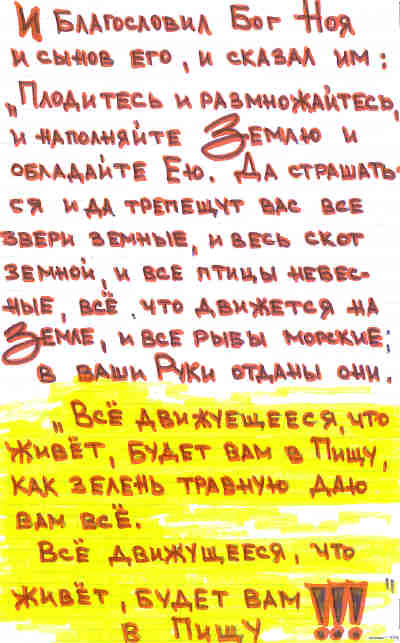 И БЛАГОСЛОВИЛ БОГ НОЯ
И СЫНОВ ЕГО, И СКАЗАЛ ИМ:
„ПЛОДИТЕСЬ И РАЗМНОЖАЙТЕСЬ,
И НАПОЛНЯЙТЕ ЗЕМЛЮ И
ОБЛАДАЙТЕ ЕЮ. ДА СТРАШАТЬ-
СЯ И ДА ТРЕПЕЩУТ ВАС ВСЕ
ЗВЕРИ ЗЕМНЫЕ, И ВЕСЬ СКОТ
ЗЕМНОЙ, И ВСЕ ПТИЦЫ НЕБЕС-
НЫЕ, ВСЁ, ЧТО ДВИЖЕТСЯ НА
ЗЕМЛЕ, И ВСЕ РЫБЫ МОРСКИЕ;
В ВАШИ РУКИ ОТДАНЫ ОНИ.
„ВСЁ ДВИЖУЕЩЕЕСЯ, ЧТО
ЖИВЁТ, БУДЕТ ВАМ В ПИЩУ,
КАК ЗЕЛЕНЬ ТРАВНУЮ ДАЮ
ВАМ ВСЁ.
ВСЁ ДВИЖУЩЕЕСЯ, ЧТО
ЖИВЁТ, БУДЕТ ВАМ !!!"
В ПИЩУ